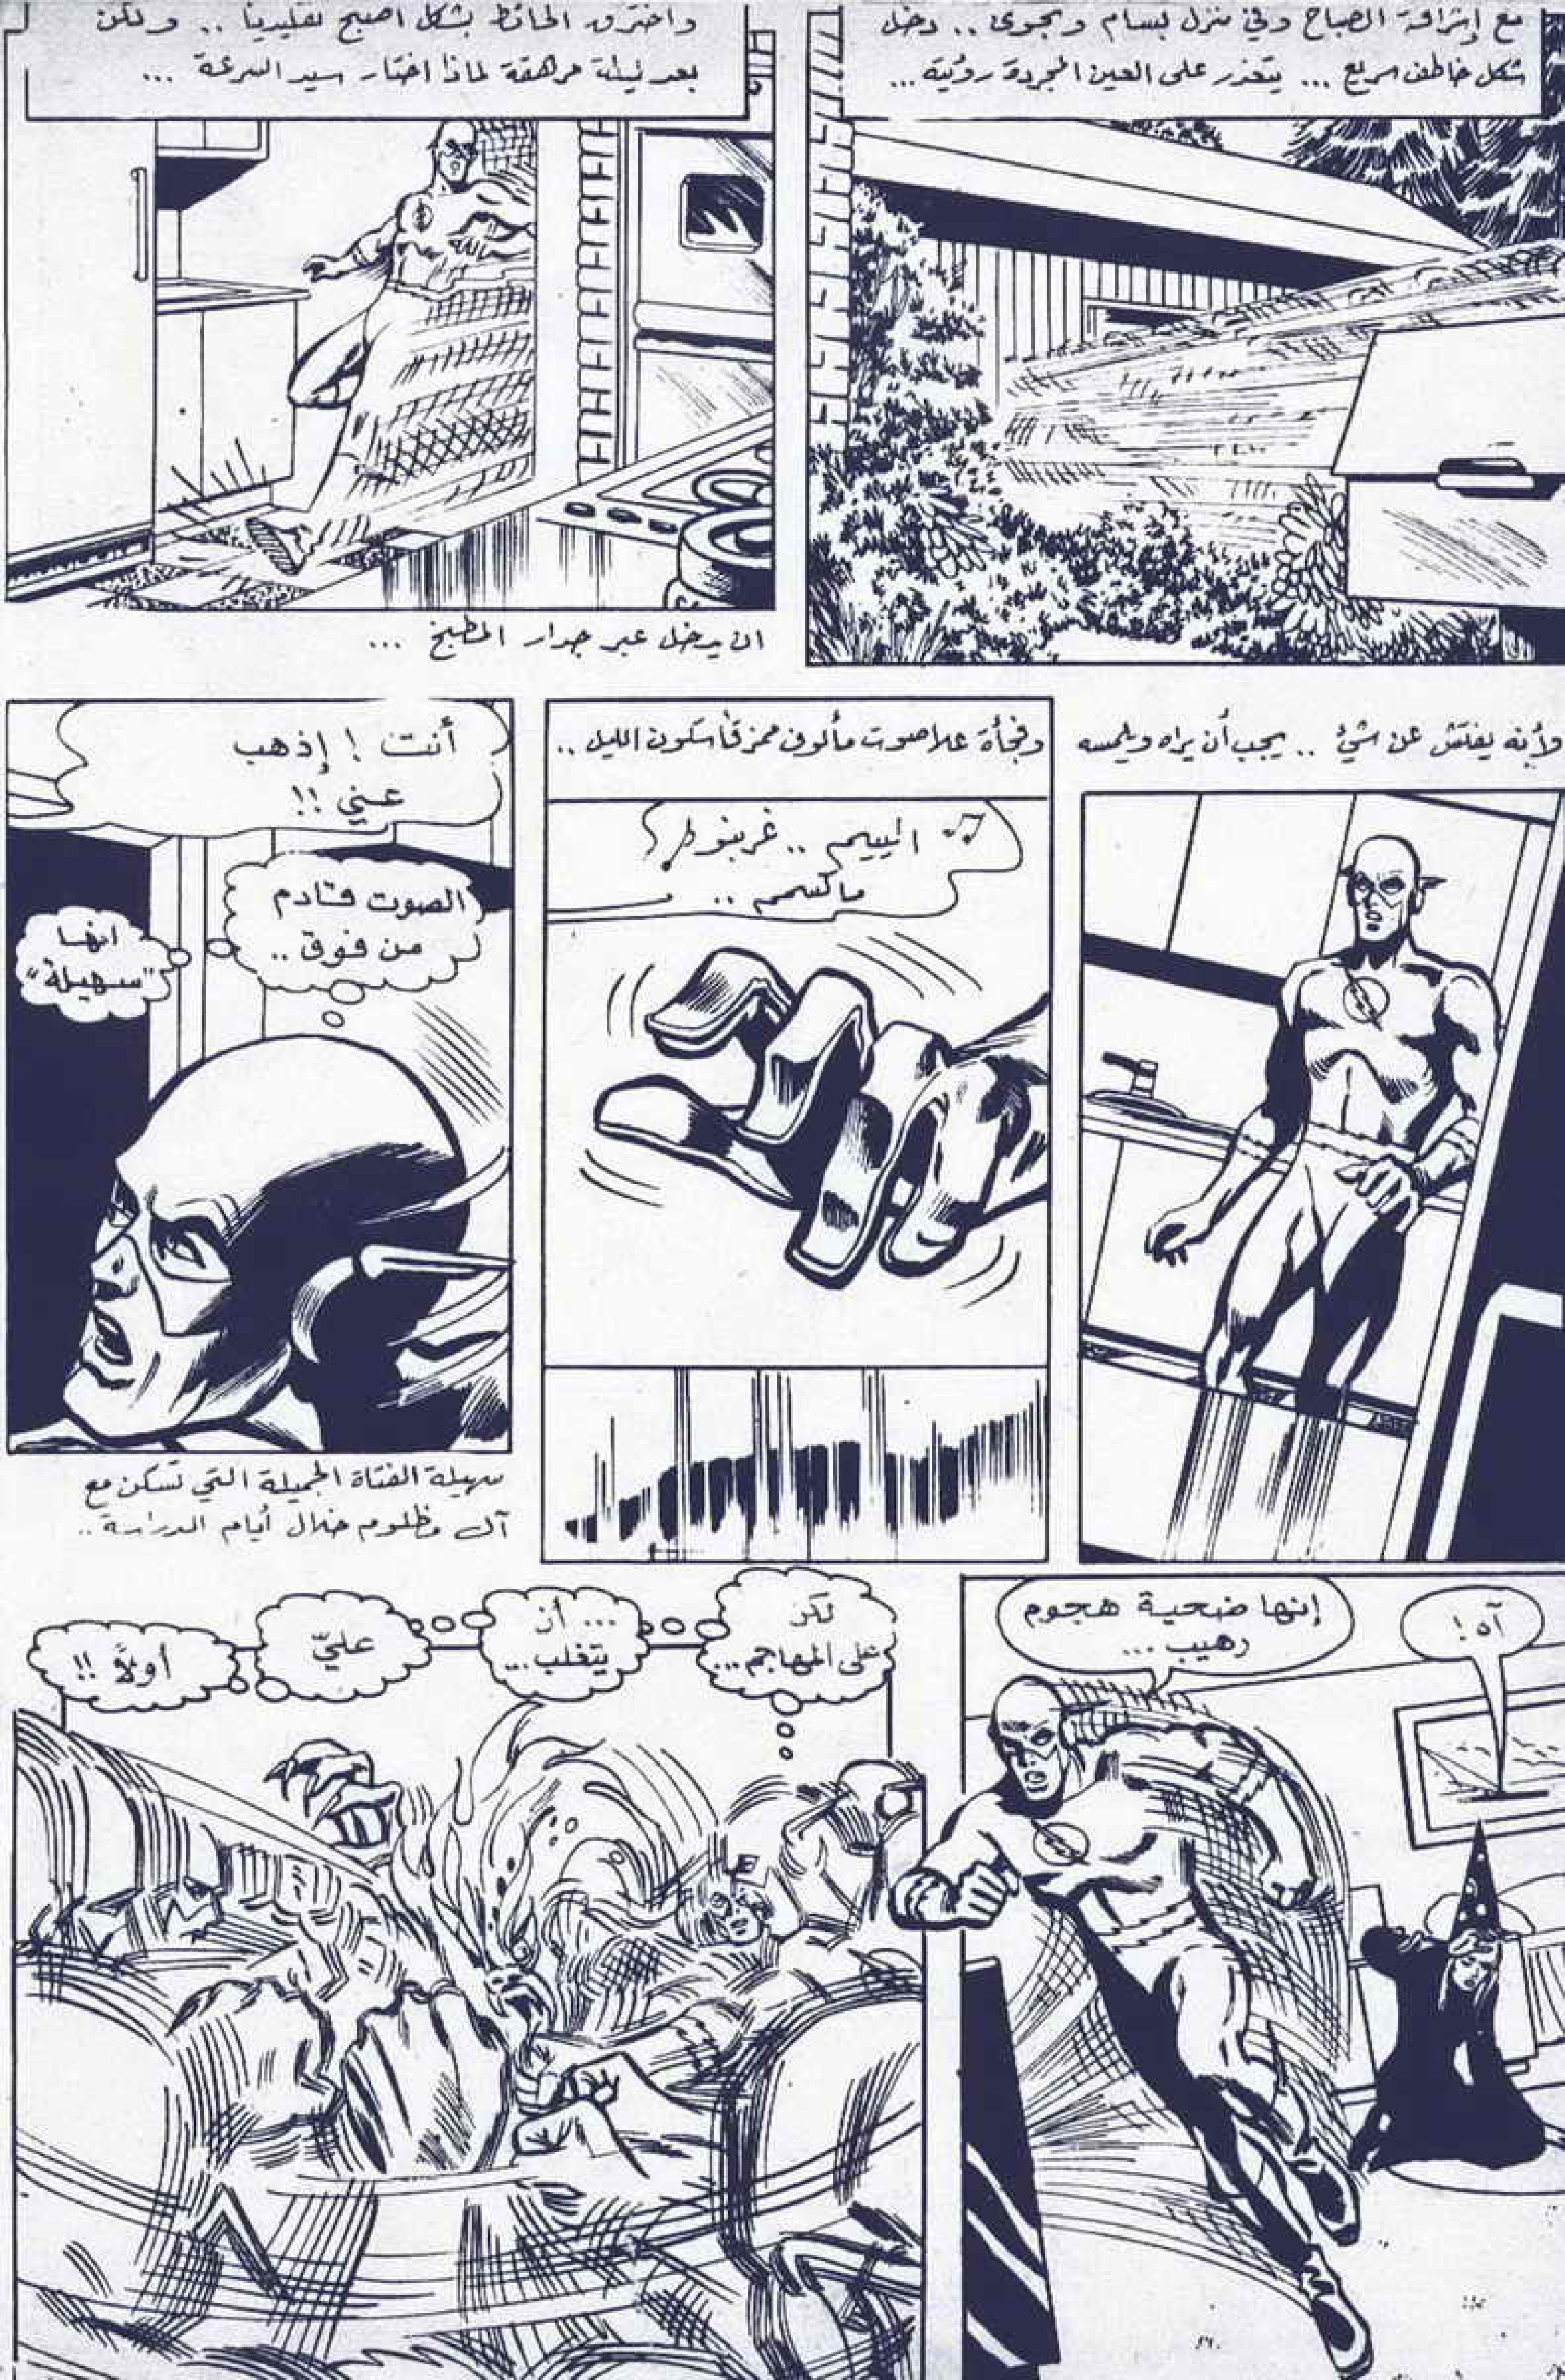 مع إشراقة الصباح وفي منزل بسام ونجوى .. دخل
شكل خاطف سريع ... يتعذر على العين المجردة رؤيته ...
واخترق الحائط بشكل اصبح تقليديا .. ولكن
بعد ليلة مرهقة لماذا اختار سيد السرعة ...
ان يدخل عبر جدار المطبخ ...
ولأنه يفتش عن شيئ .. يجب أن يراه ويلمسه
وفجأة علا صوت مألوف ممزقاً سكون الليل ..
الييم .. غربنوط
ماكسم ..
أنت ! إذهب
عني !!
الصوت قادم
من فوق ..
انها
"سهيلة"
سهيلة الفتاة الجميلة التي تسكن مع
آل مظلوم خلال أيام الدراسة ..
آه !
إنها ضحية هجوم
رهيب ...
لكن
على المهاجم ...
... أن
يتغلب ...
عليّ
أولاً !!